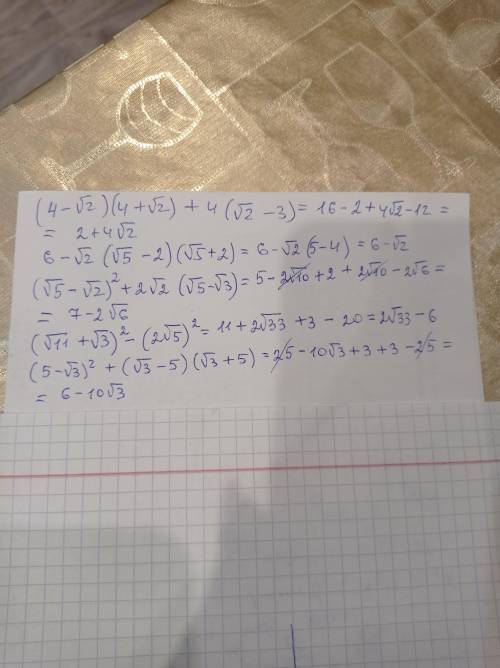 (4-√2)(4+√2) + 4(√2-3) = 16-2+4√2-12 =
= 2+4√2
6-√2(√5-2)(√5+2) = 6-√2(5-4) = 6-√2
(√5-√2)²+2√2(√5-√3) = 5-2√10+2+2√10-2√6 =
= 7-2√6
(√11+√3)²-(2√5)² = 11+2√33+3-20 = 2√33-6
(5-√3)²+(√3-5)(√3+5) = 25-10√3+3+3-25 =
= 6-10√3